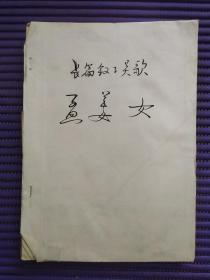 长篇叙事吴歌
孟姜女